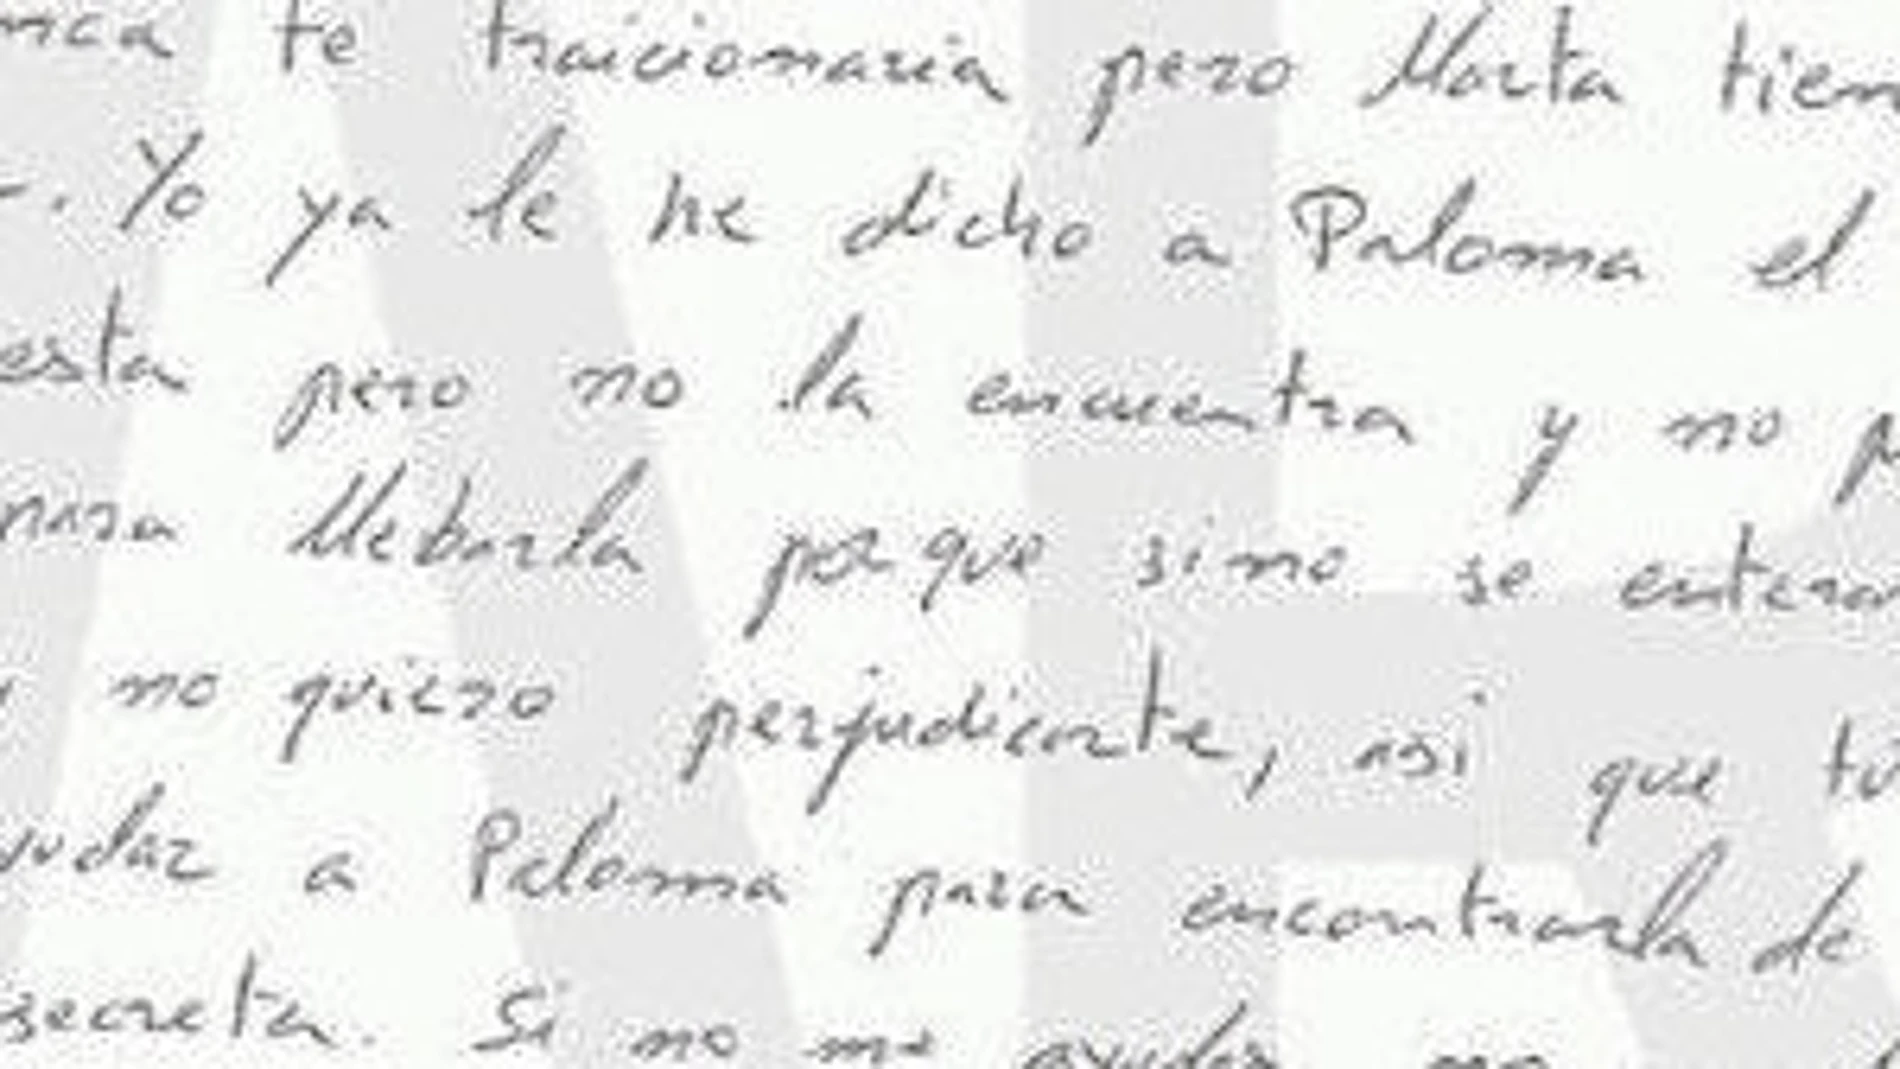 nca te traicionaria pero Marta tien
. Yo ya le he dicho a Paloma el
esta pero no la encuentra y no p
para llebarla porque sino se enterar
y no quiero perjudicarte, asi que tú
yudar a Paloma para encontrarla de
secreta. Si no me ayudas no